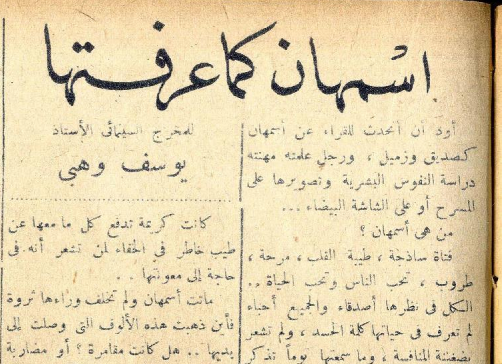 اسمهان كما عرفتها
للمخرج السينمائى الأستاذ
يوسف وهبى
أود أن أتحدث للقراء عن أسمهان
كصديق وزميل ، ورجل علمته مهنته
دراسة النفوس البشرية وتصويرها على
المسرح أو على الشاشة البيضاء ...
من هى أسمهان ؟
فتاة ساذجة ، طيبة القلب ، مرحة ،
طروب ، تحب الناس وتحب الحياة ..
الكل فى نظرها أصدقاء والجميع أحباء
لم تعرف فى حياتها كلمة الحسد ، ولم تشعر
بضغينة المنافسة ، وما سمعتها يوماً تذكر
كانت كريمة تدفع كل ما معها عن
طيب خاطر فى الخفاء لمن تشعر أنه فى
حاجة إلى معونتها ..
ماتت أسمهان ولم تخلف وراءها ثروة
فأين ذهبت هذه الألوف التى وصلت إلى
يديها .. هل كانت مقامرة ؟ أو مضاربة